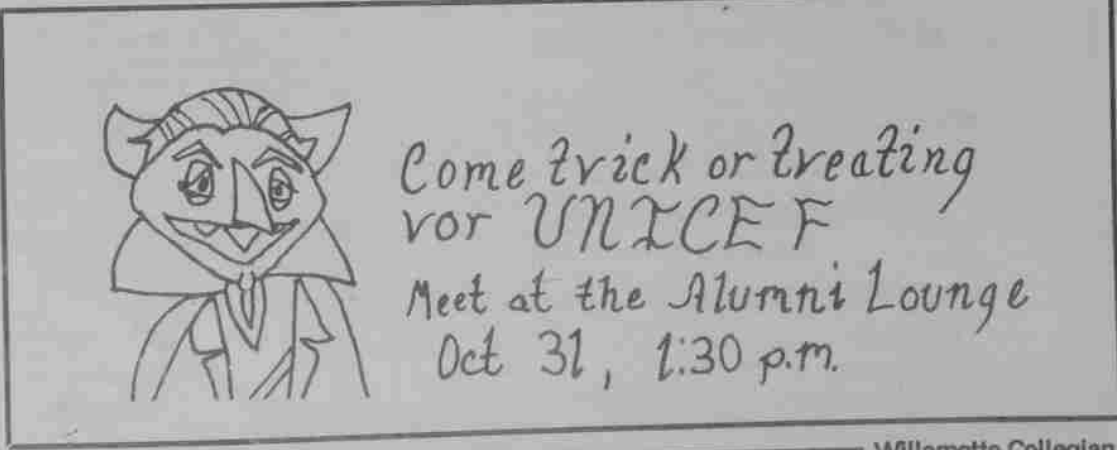 Come trick or treating
vor UNICEF
Meet at the Alumni Lounge
Oct 31, 1:30 p.m.
Willamette Collegian